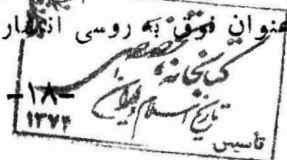 عنوان فوق به روسی انتشار
کتابخانه تخصصی
تاریخ اسلام و ایران
-۱۸-
تأسیس ۱۳۷۴